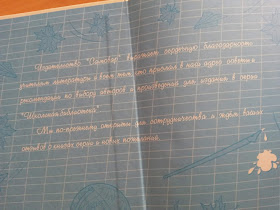 Издательство "Самовар" выражает сердечную благодарность
учителям литературы и всем тем, кто прислал в наш адрес советы и
рекомендации по выбору авторов и произведений для издания в серии
"Школьная библиотека".
Мы по-прежнему открыты для сотрудничества и ждём ваших
отзывов о книгах серии и новых пожеланий.